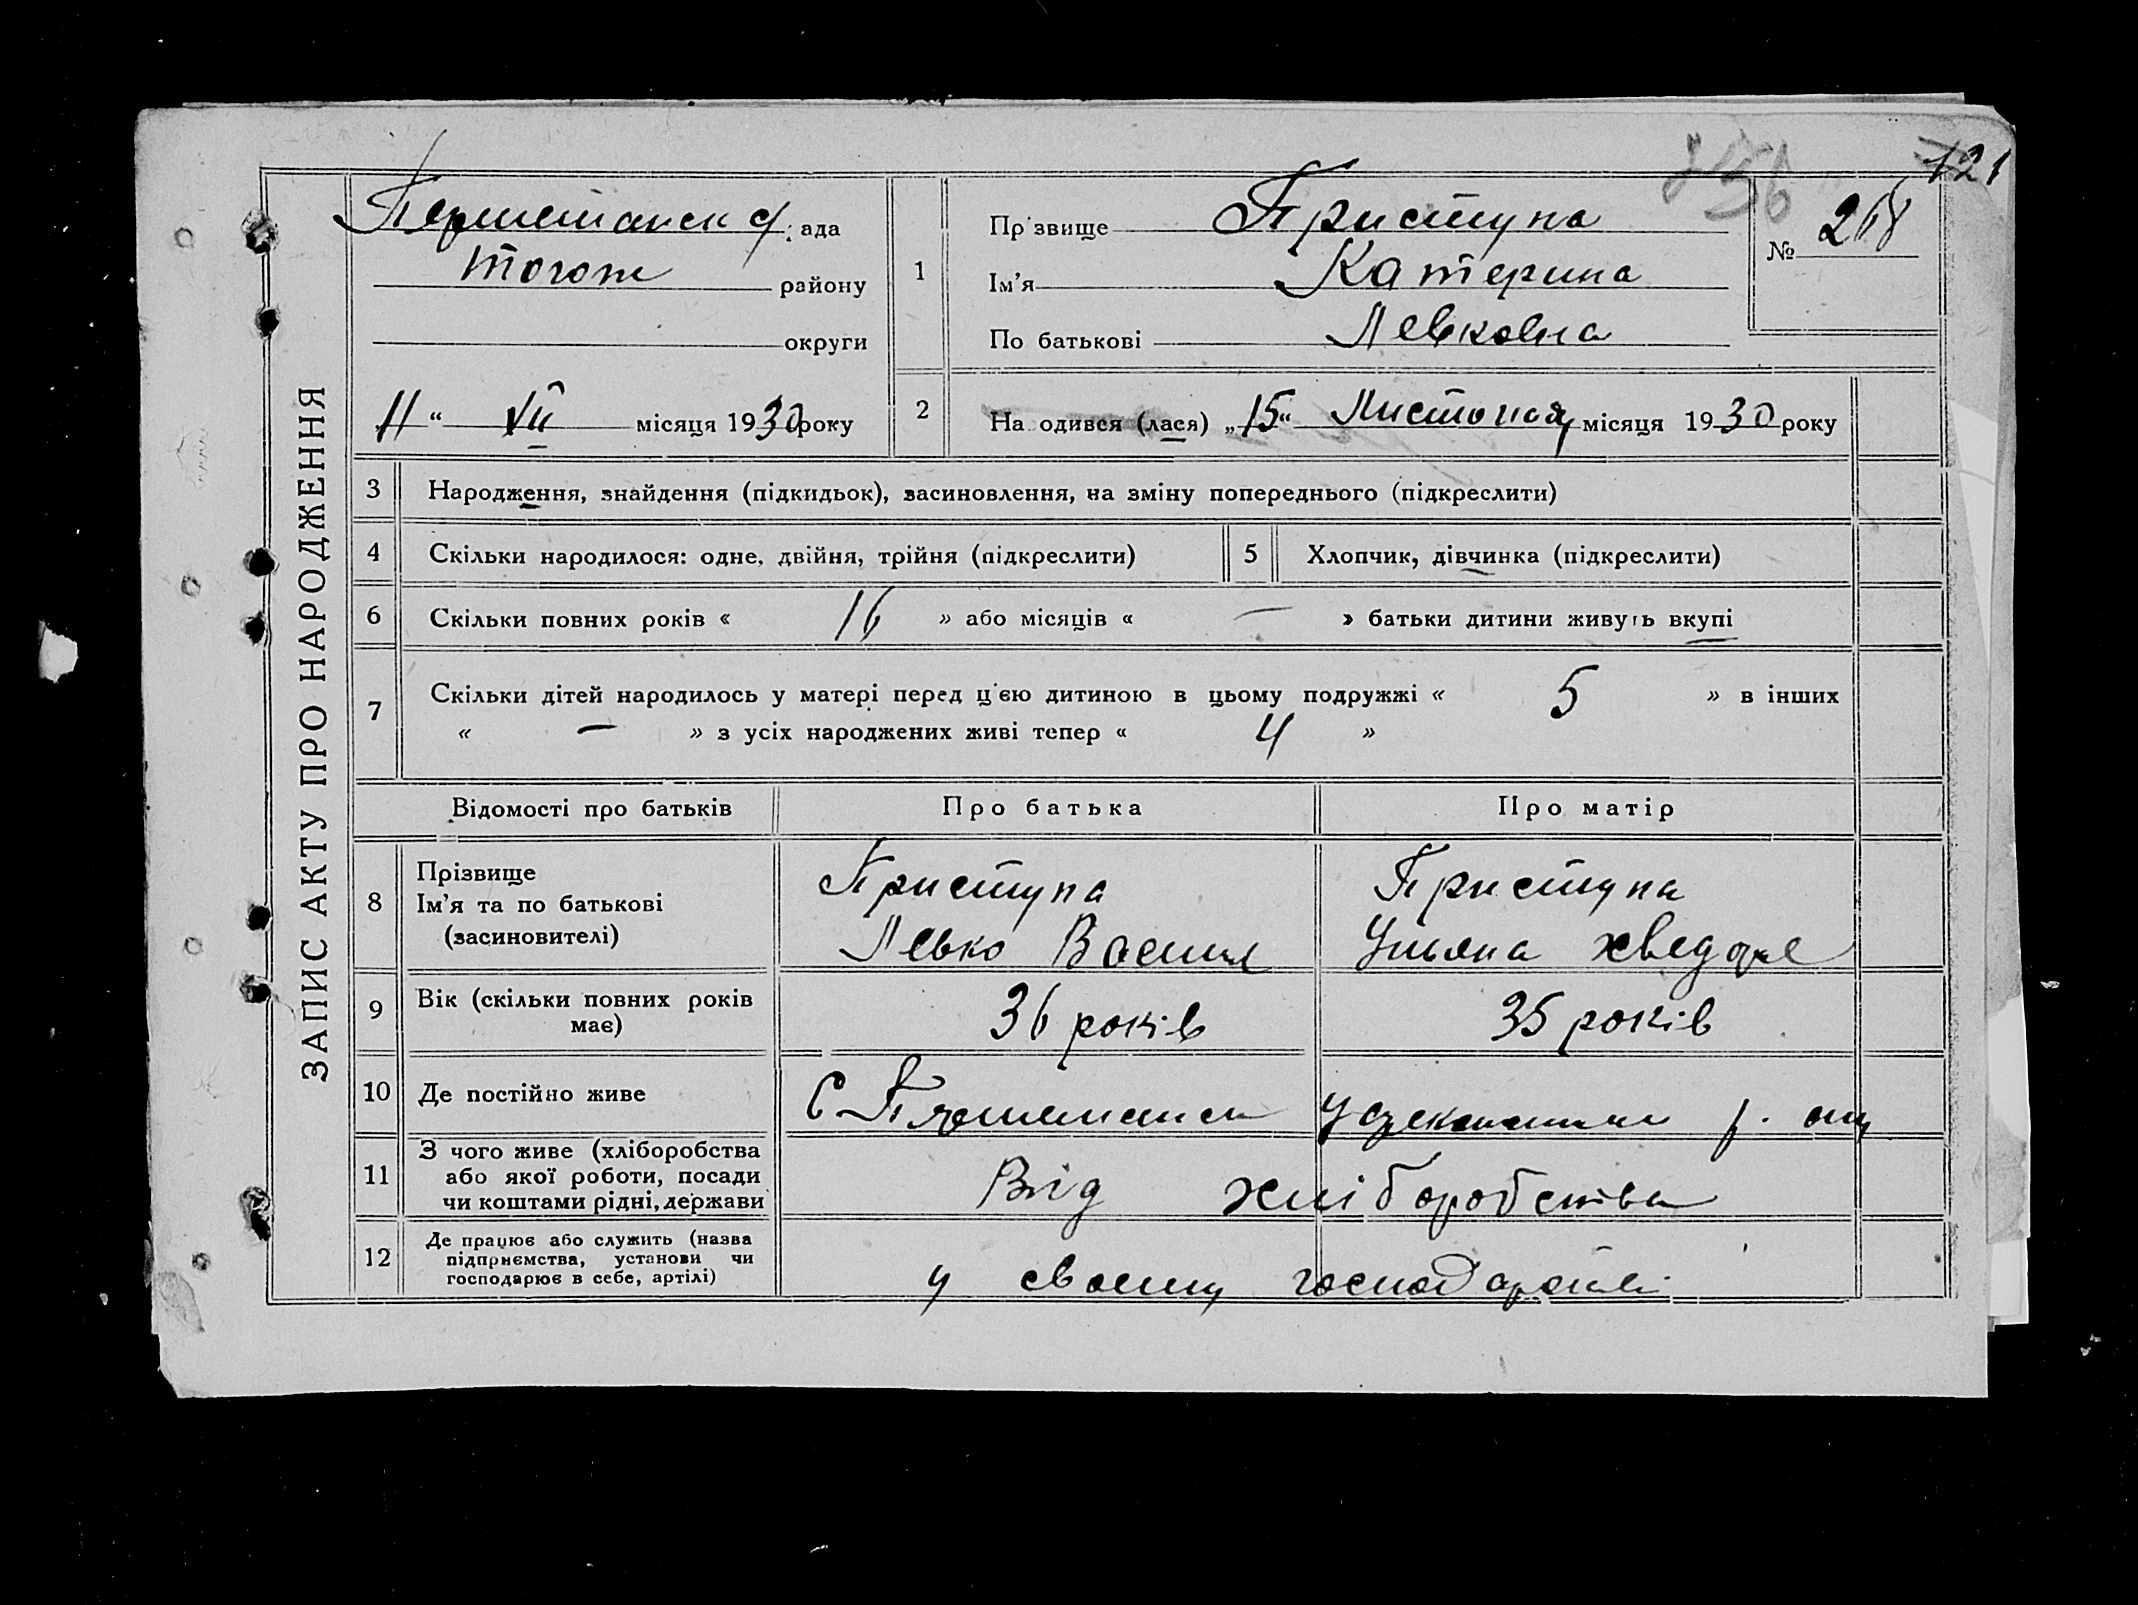 121
256
ЗАПИС АКТУ ПРО НАРОДЖЕННЯ
рада
тогож району
округи
11 “ VII місяця 1930 року
1 Прізвище Приступа
Ім’я Катерина
По батькові Левковна
№ 268
2 На одився (лася) „15“ Листопад місяця 1930 року
3 Народження, знайдення (підкидьок), засиновлення, на зміну попереднього (підкреслити)
4 Скільки народилося: одне, двійня, трійня (підкреслити)
5 Хлопчик, дівчинка (підкреслити)
6 Скільки повних років « 16 » або місяців « — » батьки дитини живуть вкупі
7 Скільки дітей народилось у матері перед ц’єю дитиною в цьому подружжі « 5 » в інших
« — » з усіх народжених живі тепер « 4 »
Відомості про батьків Про батька Про матір
8 Прізвище
Ім’я та по батькові
(засиновителі)
Приступа
Левко Васил
Приступа
Уляна хведор
9 Вік (скільки повних років
має)
36 років
35 років
10 Де постійно живе
С
р.
11 З чого живе (хліборобства
або якої роботи, посади
чи коштами рідні, держави
Від хліборобства
12 Де працює або служить (назва
підприємства, установи чи
господарює в себе, артілі)
у своему господарстві